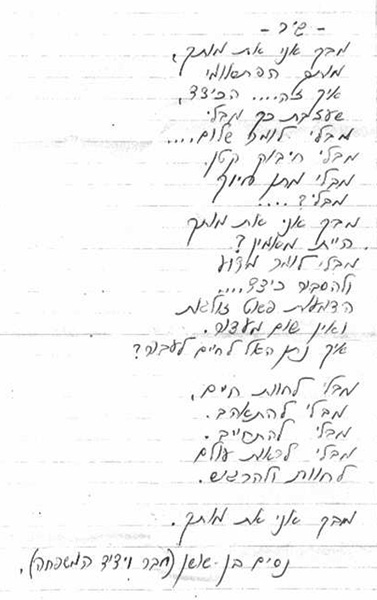 - שיר -
מבכה אני את מותך,
מותך הפתאומי
איך זה.... הכיצד,
שעזבת כך מבלי
מבלי לומר שלום....
מבלי חיבוק קטן.
מבלי מתן
מבלי?....
מבכה אני את מותך
היית מאמין?
מבלי לומר מדוע
ולהסביר כיצד....
הדמעות פשוט זולגות
ואין שום מעצור.
איך נתן האל לחיים לעבור?
מבלי לחוות חיים,
מבלי להתאהב.
מבלי
מבלי לראות עולם
לחוות ולהרגיש.
מבכה אני את מותך.
נסים בן-שושן (חבר וידיד המשפחה),